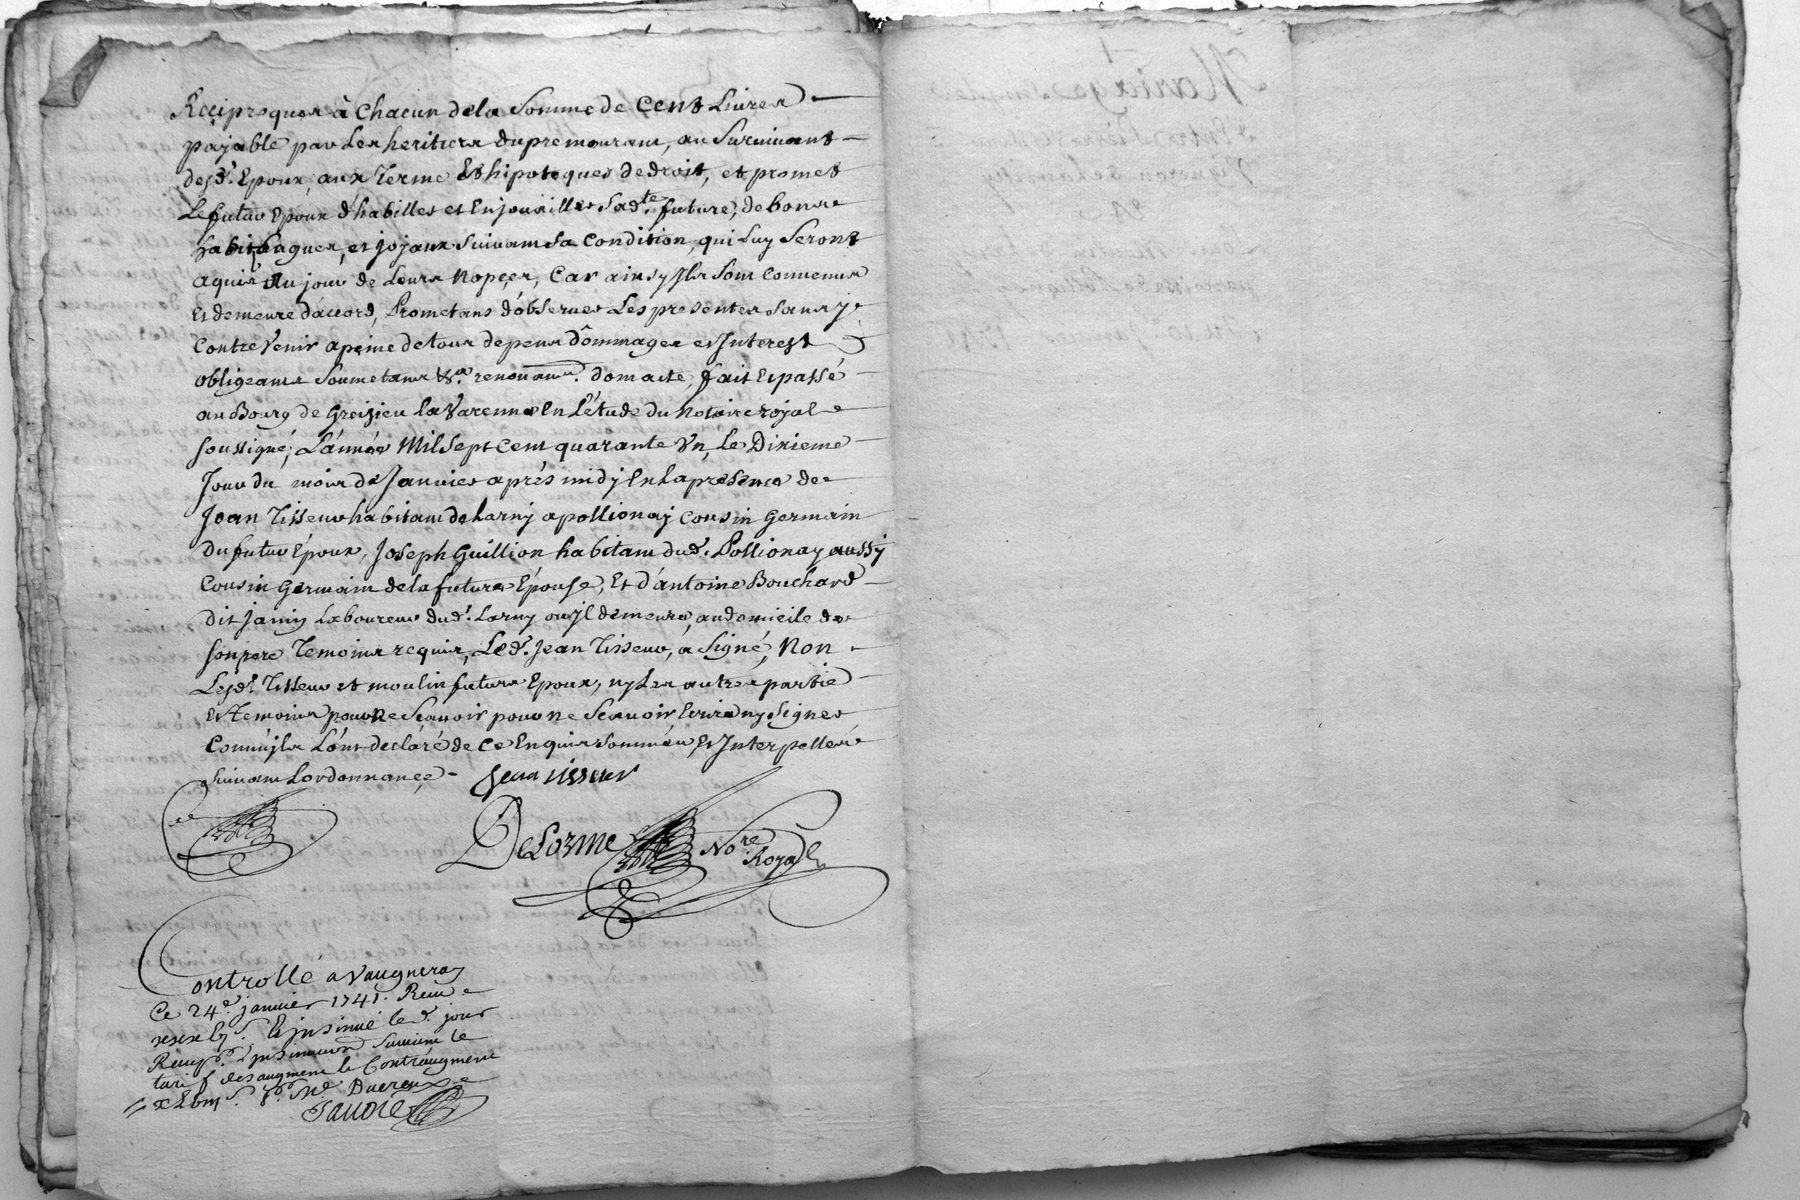 Reciproques à Chacun de la Somme de Cent Livres
payable par Les heritiers du premourant, au Survivant
desd. Epoux, aux Terme Et hipoteques de droit, et promet
Le futur Epoux d'habiller et Enjoviller sad.te future, de bons
habit, bagues, et joyaux suivant sa Condition, qui Luy Seront
aquis Au jour de Leurs Nopçes, Car ainsy Ils sont Convenus
Et demeuré d'accord, Prometans d'observer Les presentes sans y
Contrevenir a peine de tous depens dômmages et Interest
obligeants Soumetans &.a renonants. dont acte, fait Et passé
au Bourg de Greizieu la Varenne En L'étude du Notaire royal
soussigné, L'année Mil Sept Cent quarante Un, Le Dixieme
Jour du mois de Janvier aprés midy En La presence de
Jean Tisseur habitant de Larny a pollionay Cousin Germain
Du futur Époux, Joseph Guillion habitant dud. Pollionay aussy
Cousin Germain de la future Épouse, Et d'antoine Bouchard
dit jainy Laboureur dud. Larny ou jl demeure, au domicile de
son pere Temoins requis, Led. Jean Tisseur, à Signé, Non
Lesd. Tisseur et moulin futurs Epoux, ny Les autres partie
Et Temoins pour Ne Sçavoir pour ne Scavoir Ecrire ny Signer
Comm'jls L'ont declaré de Ce Enquis Sommés, Et Interpellés
Suivant Lordonnance
Jean tisseur
DeLorme No.re Royal
Controllé a Vaugneray
Ce 24.e janvier 1741. Reçu
Et jnsinué le d. jour
Reçu
suivant le
tarif des augment & Contraugment
Ducreux
Favore